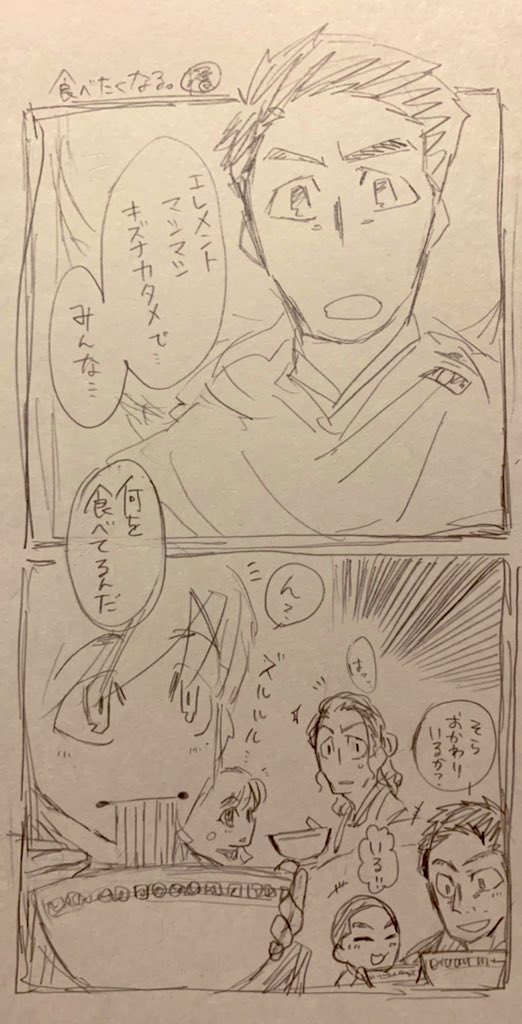 食べたくなる。
エレメント
マシマシ
キズナカタメで…
みんな…
何を
食べてるんだ
ん？
ズルルル
はっ…
そら
おかわり
いるか？
いる!!